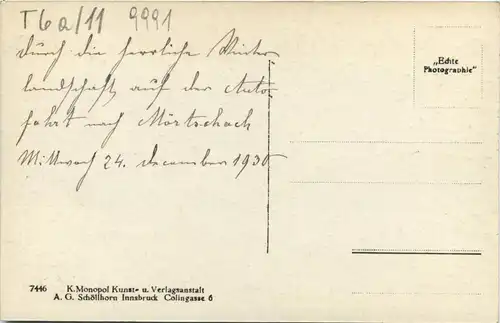 T6a/11 9991
durch die herrliche Winter
landschaft auf der Auto
fahrt nach Mörtschach
Mittwoch 24. december 1930
„Echte
Photographie"
7446 K. Monopol Kunst- u. Verlagsanstalt
A. G. Schöllhorn Innsbruck Colingasse 6